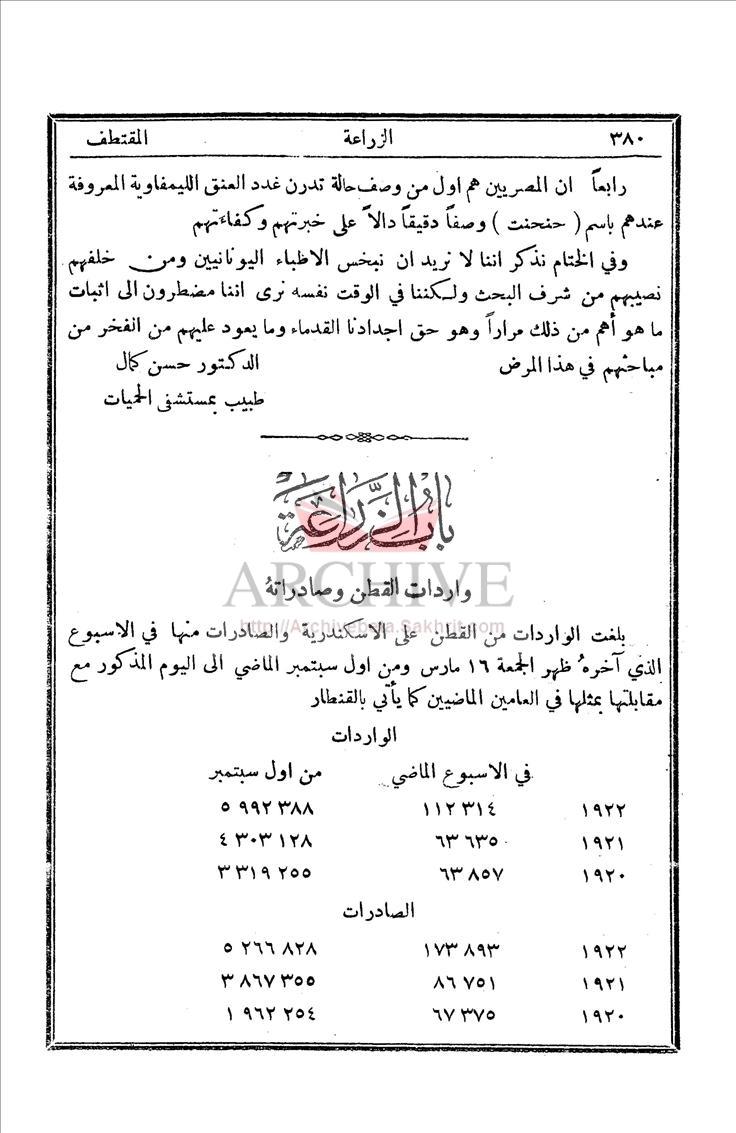 ٣٨٠ الزراعة المقتطف
رابعاً ان المصريين هم اول من وصف حالة تدرن غدد العنق الليمفاوية المعروفة
عندهم باسم ( حنحنت ) وصفاً دقيقاً دالاً على خبرتهم وكفاءتهم
وفي الختام نذكر اننا لا نريد ان نبخس الاطباء اليونانيين ومن خلفهم
نصيبهم من شرف البحث ولكننا في الوقت نفسه نرى اننا مضطرون الى اثبات
ما هو أهم من ذلك مراراً وهو حق اجدادنا القدماء وما يعود عليهم من الفخر من
مباحثهم في هذا المرض الدكتور حسن كمال
طبيب بمستشفى الحميات
باب الزراعة
ARCHIVE
واردات القطن وصادراته
http://Archivebeta.Sakhrit.com
بلغت الواردات من القطن على الاسكندرية والصادرات منها في الاسبوع
الذي آخره ظهر الجمعة ١٦ مارس ومن اول سبتمبر الماضي الى اليوم المذكور مع
مقابلتها بمثلها في العامين الماضيين كما يأتي بالقنطار
الواردات
في الاسبوع الماضي من اول سبتمبر
١٩٢٢ ١١٢ ٣١٤ ٥ ٩٩٢ ٣٨٨
١٩٢١ ٦٣ ٦٣٥ ٤ ٣٠٣ ١٢٨
١٩٢٠ ٦٣ ٨٥٧ ٣ ٣١٩ ٢٥٥
الصادرات
١٩٢٢ ١٧٣ ٨٩٣ ٥ ٢٦٦ ٨٢٨
١٩٢١ ٨٦ ٧٥١ ٣ ٨٦٧ ٣٥٥
١٩٢٠ ٦٧ ٣٧٥ ١ ٩٦٢ ٢٥٤